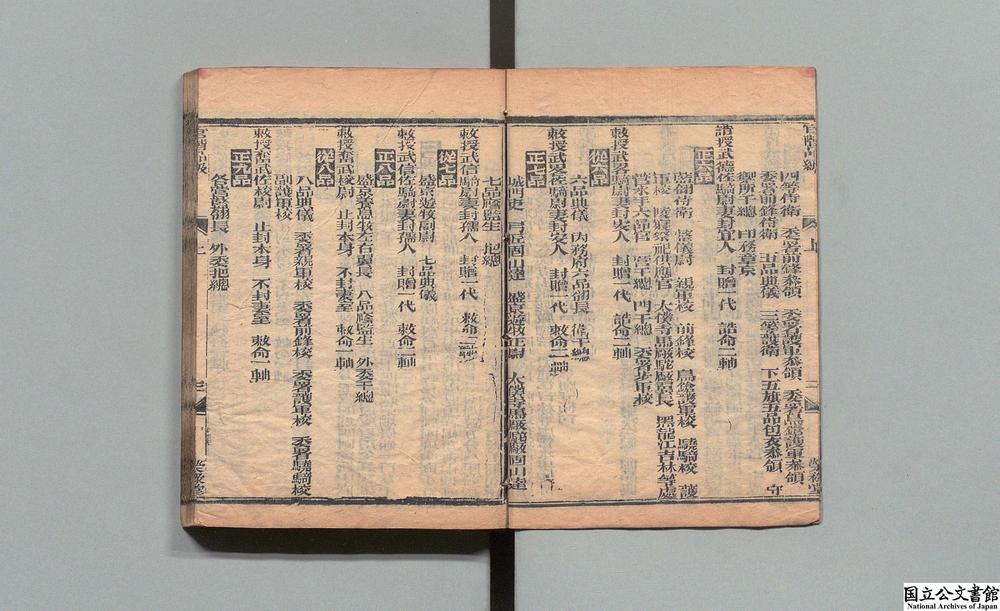 官階品級 上
四等侍衛 委署前鋒參領 委署護軍參領 委署鳥鎗護軍參領
委署前鋒侍衛 五品典儀 三等護衛 下五旗五品包衣參領 守
御所千總 印務章京
誥授武德佐騎尉妻封宜人 封贈一代 誥命二軸
正六品
藍翎侍衛 整儀尉 親軍校 前鋒校 鳥鎗護軍校 驍騎校 護
軍校 陵寢祭祀供應官 太僕寺馬廠駝廠翼長 黑龍江吉林等處
管水手六品官 營千總 門千總 委署步軍校
敕授武畧騎尉妻封安人 封贈一代 誥命二軸
從六品
六品典儀 內務府六品翎長 衛千總
敕授武畧佐騎尉妻封安人 封贈一代 敕命二軸
正七品
城門吏 弓匠固山達 盛京遊牧正尉 太僕寺馬廠駝廠固山達
七品廕監生 把總
敕授武信騎尉妻封孺人 封贈一代 敕命二軸
從七品
盛京遊牧副尉 七品典儀
敕授武信佐騎尉妻封孺人 封贈一代 敕命二軸
正八品
盛京養息牧左右翼長 八品廕監生 外委千總
敕授奮武校尉 止封本身 不封妻室 敕命一軸
從八品
八品典儀 委署親軍校 委署前鋒校 委署護軍校 委署驍騎校
副護軍校
敕授奮武佐校尉 止封本身 不封妻室 敕命一軸
正九品
各營藍翎長 外委把總
官階品級 上
国立公文書館
National Archives of Japan